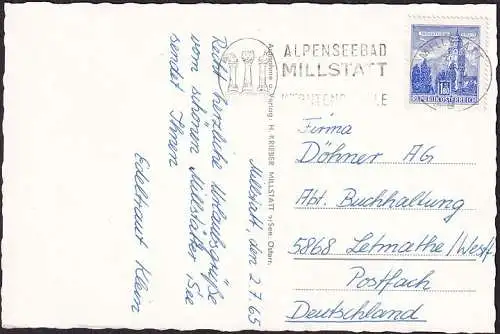 Recht herzliche Urlaubsgrüße
vom schönen Millstätter See
sendet Ihnen
Edeltraut Klein
Millstatt, den 2.7.65
Aufnahme u. Verlag: H. KRIEBER MILLSTATT a/See, Österr.
ALPENSEEBAD
MILLSTATT
REPUBLIK ÖSTERREICH
Firma
Döhner AG
Abt. Buchhaltung
5868 Letmathe/Westf.
Postfach
Deutschland